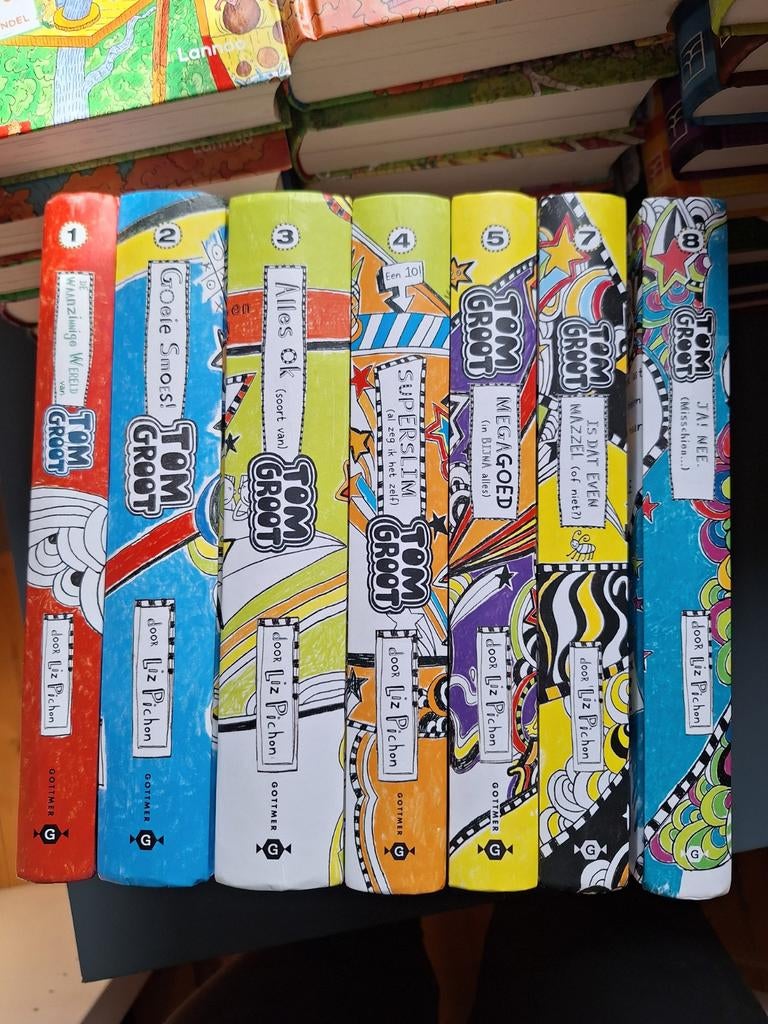 NDEL
Lannoo
Lannoo
1
DE
WAANZINNIGE WERELD
van
TOM
GROOT
DOOR Liz Pichon
GOTTMER
G
2
GOEIE SMOES!
TOM
GROOT
DOOR Liz Pichon
GOTTMER
G
3
en
Alles OK (soort van)
TOM
GROOT
DOOR Liz Pichon
GOTTMER
G
4
Een 10!
SUPERSLIM
(al zeg ik het zelf)
TOM
GROOT
DOOR Liz Pichon
GOTTMER
G
5
TOM
GROOT
MEGAGOED
(in BIJNA alles)
DOOR Liz Pichon
GOTTMER
G
7
TOM
GROOT
IS DAT EVEN
MAZZEL (of niet?)
DOOR Liz Pichon
G
8
TOM
GROOT
JA! NEE.
(Misschien...)
DOOR Liz Pichon
G